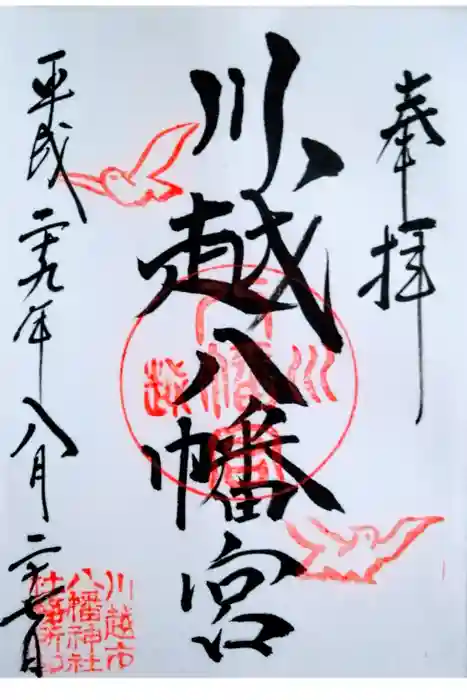 奉拝
川越八幡宮
川
八幡宮
越
平成二十九年八月二十七日
川越市
八幡神社
社務所印